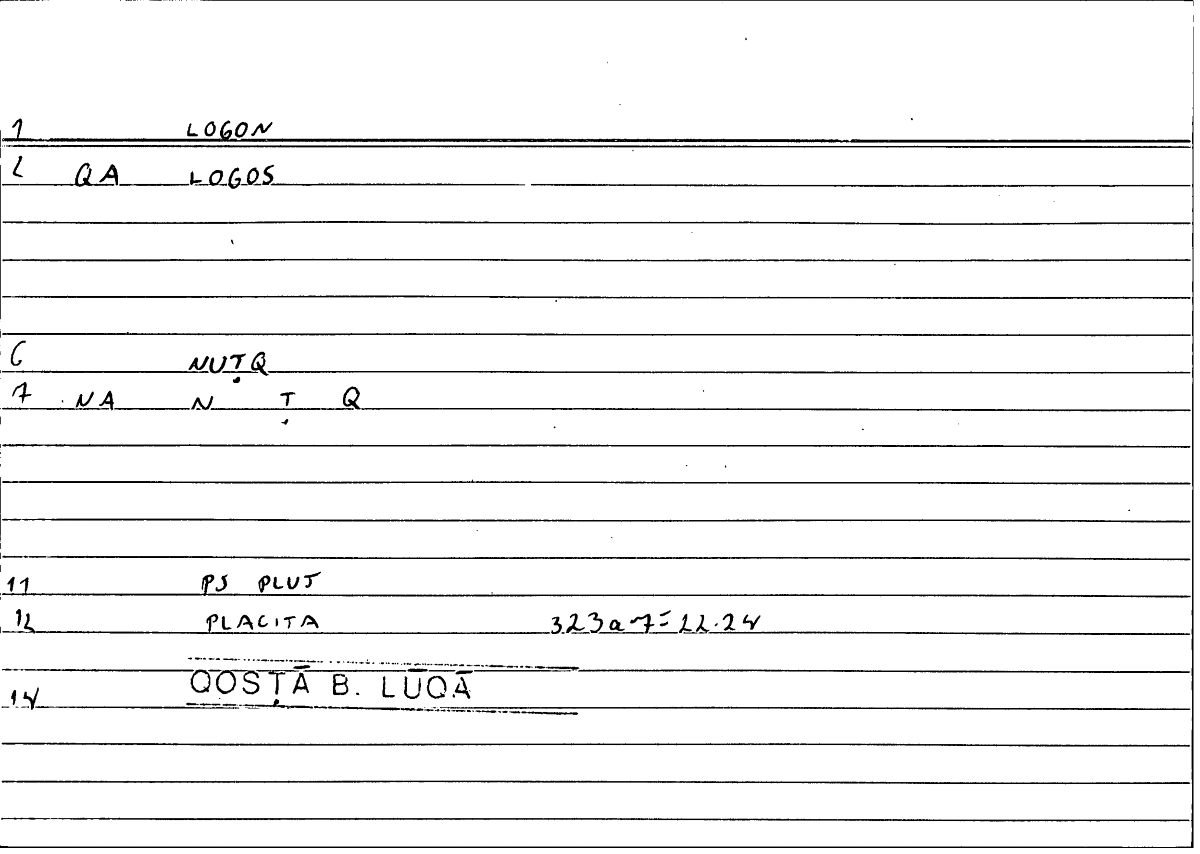 1 LOGON
2 QA LOGOS
6 NUṬQ
7 NA N Ṭ Q
11 PS PLUT
12 PLACITA 323a7=22.24
14 QOSṬĀ B. LŪQĀ